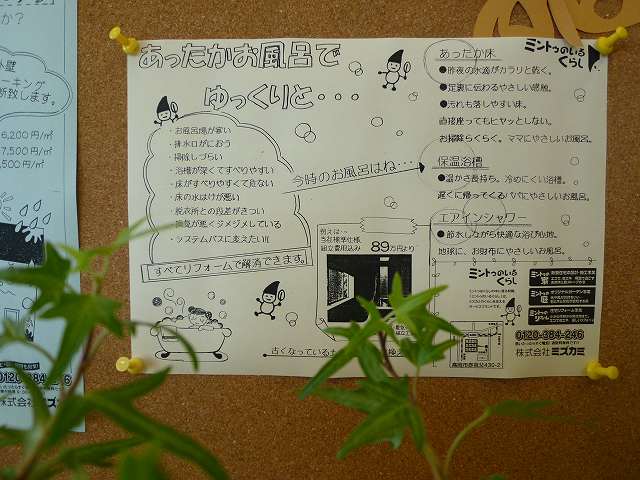 か?
外壁
ーキング
断致します。
6,200円/㎡
7,500円/㎡
,500円/㎡
0120-384-246
株式会社ミズカミ
あったかお風呂で
ゆっくりと・・・
・お風呂場が寒い
・排水口がにおう
・掃除しづらい
・浴槽が深くてすべりやすい
・床がすべりやすくて危ない
・床の水はけが悪い
・脱衣所との段差がきつい
・換気が悪くジメジメしている
・システムバスに変えたい!!
すべてリフォームで解消できます。
今時のお風呂はね・・・
例えば…
当社標準仕様
組立費用込み 89万円より
古くなっている
ミントゥのいえ
くらし
あったか床
●昨夜の水滴がカラリと乾く。
●足裏に伝わるやさしい感触。
●汚れも落しやすい床。
直接座ってもヒヤッとしない。
お掃除らくらく。ママにやさしいお風呂。
保温浴槽
●温かさ長持ち。冷めにくい浴槽。
遅くに帰ってくるパパにやさしいお風呂。
エアインシャワー
●節水しながら快適な浴び心地。
地球に、お財布にやさしいお風呂。
ミントゥのいえ
くらし
0120-384-246
株式会社 ミズカミ